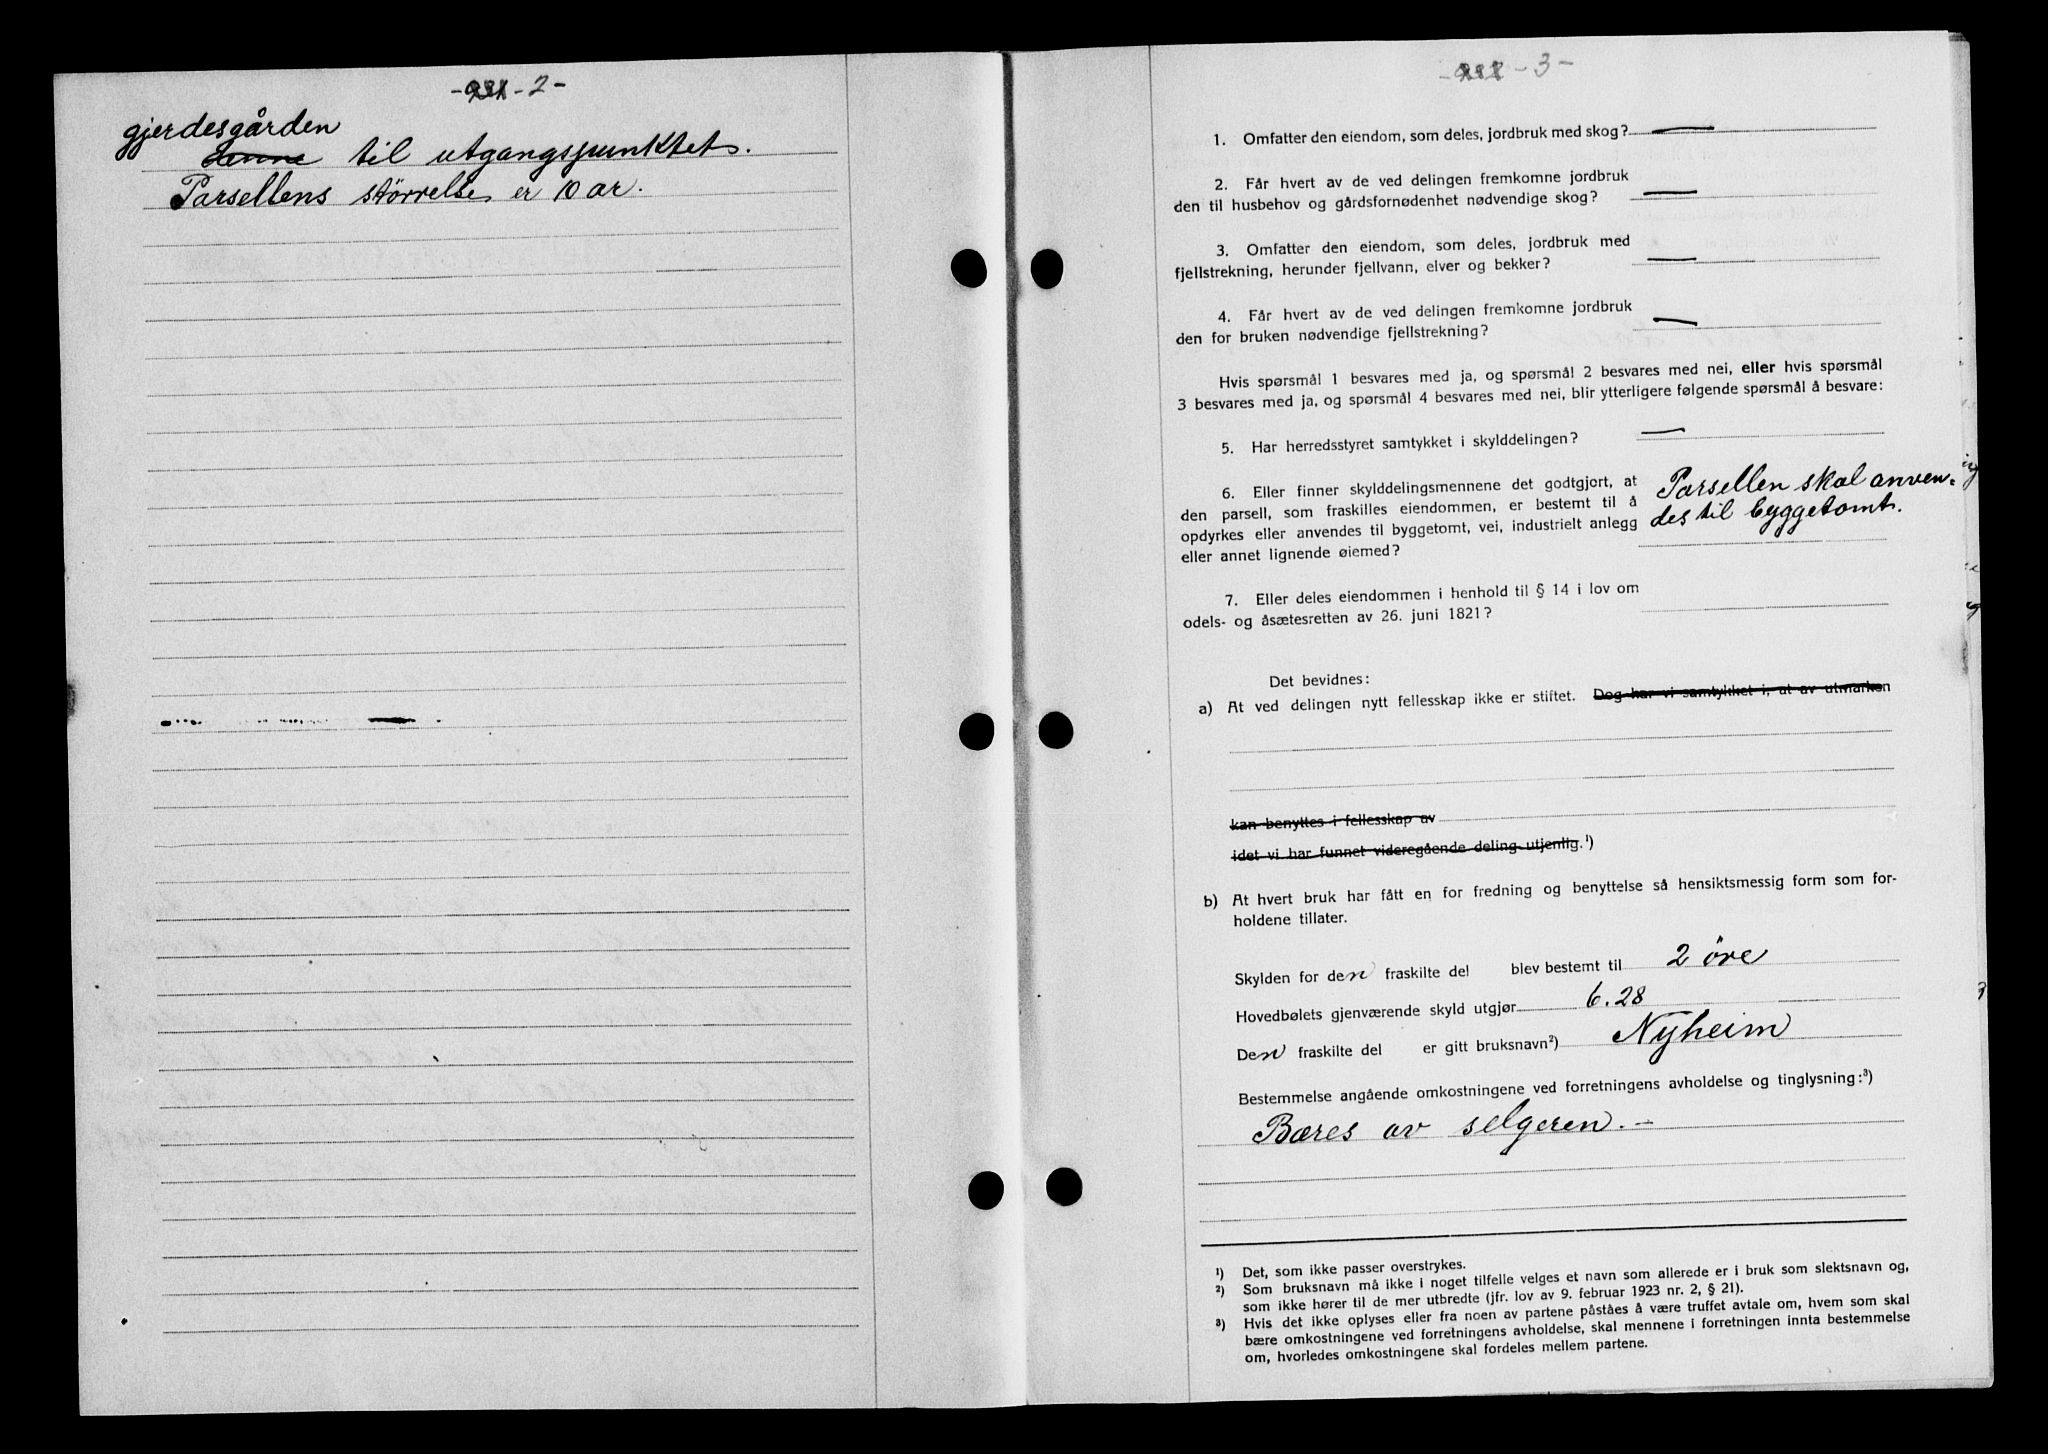 - 2 -
gjerdesgården
denne til utgangspunktet.
Parsellens størrelse er 10 ar.
- 3 -
1. Omfatter den eiendom, som deles, jordbruk med skog? —
2. Får hvert av de ved delingen fremkomne jordbruk
den til husbehov og gårdsfornødenhet nødvendige skog? —
3. Omfatter den eiendom, som deles, jordbruk med
fjellstrekning, herunder fjellvann, elver og bekker? —
4. Får hvert av de ved delingen fremkomne jordbruk
den for bruken nødvendige fjellstrekning? —
Hvis spørsmål 1 besvares med ja, og spørsmål 2 besvares med nei, eller hvis spørsmål
3 besvares med ja, og spørsmål 4 besvares med nei, blir ytterligere følgende spørsmål å besvare:
5. Har herredsstyret samtykket i skylddelingen? —
6. Eller finner skylddelingsmennene det godtgjort, at
den parsell, som fraskilles eiendommen, er bestemt til å
opdyrkes eller anvendes til byggetomt, vei, industrielt anlegg
eller annet lignende øiemed?
Parsellen skal anven-
des til byggetomt.
7. Eller deles eiendommen i henhold til § 14 i lov om
odels- og åsætesretten av 26. juni 1821?
Det bevidnes:
a) At ved delingen nytt fellesskap ikke er stiftet. Dog har vi samtykket i, at av utmarken
kan benyttes i fellesskap av
idet vi har funnet videregående deling utjenlig.¹)
b) At hvert bruk har fått en for fredning og benyttelse så hensiktsmessig form som for-
holdene tillater.
Skylden for den fraskilte del blev bestemt til 2 öre
Hovedbølets gjenværende skyld utgjør 6.28
Den fraskilte del er gitt bruksnavn²) Nyheim
Bestemmelse angående omkostningene ved forretningens avholdelse og tinglysning:³)
Bæres av selgeren. —
¹) Det, som ikke passer overstrykes.
²) Som bruksnavn må ikke i noget tilfelle velges et navn som allerede er i bruk som slektsnavn og,
som ikke hører til de mer utbredte (jfr. lov av 9. februar 1923 nr. 2, § 21).
³) Hvis det ikke oplyses eller fra noen av partene påståes å være truffet avtale om, hvem som skal
bære omkostningene ved forretningens avholdelse, skal mennene i forretningen innta bestemmelse
om, hvorledes omkostningene skal fordeles mellem partene.